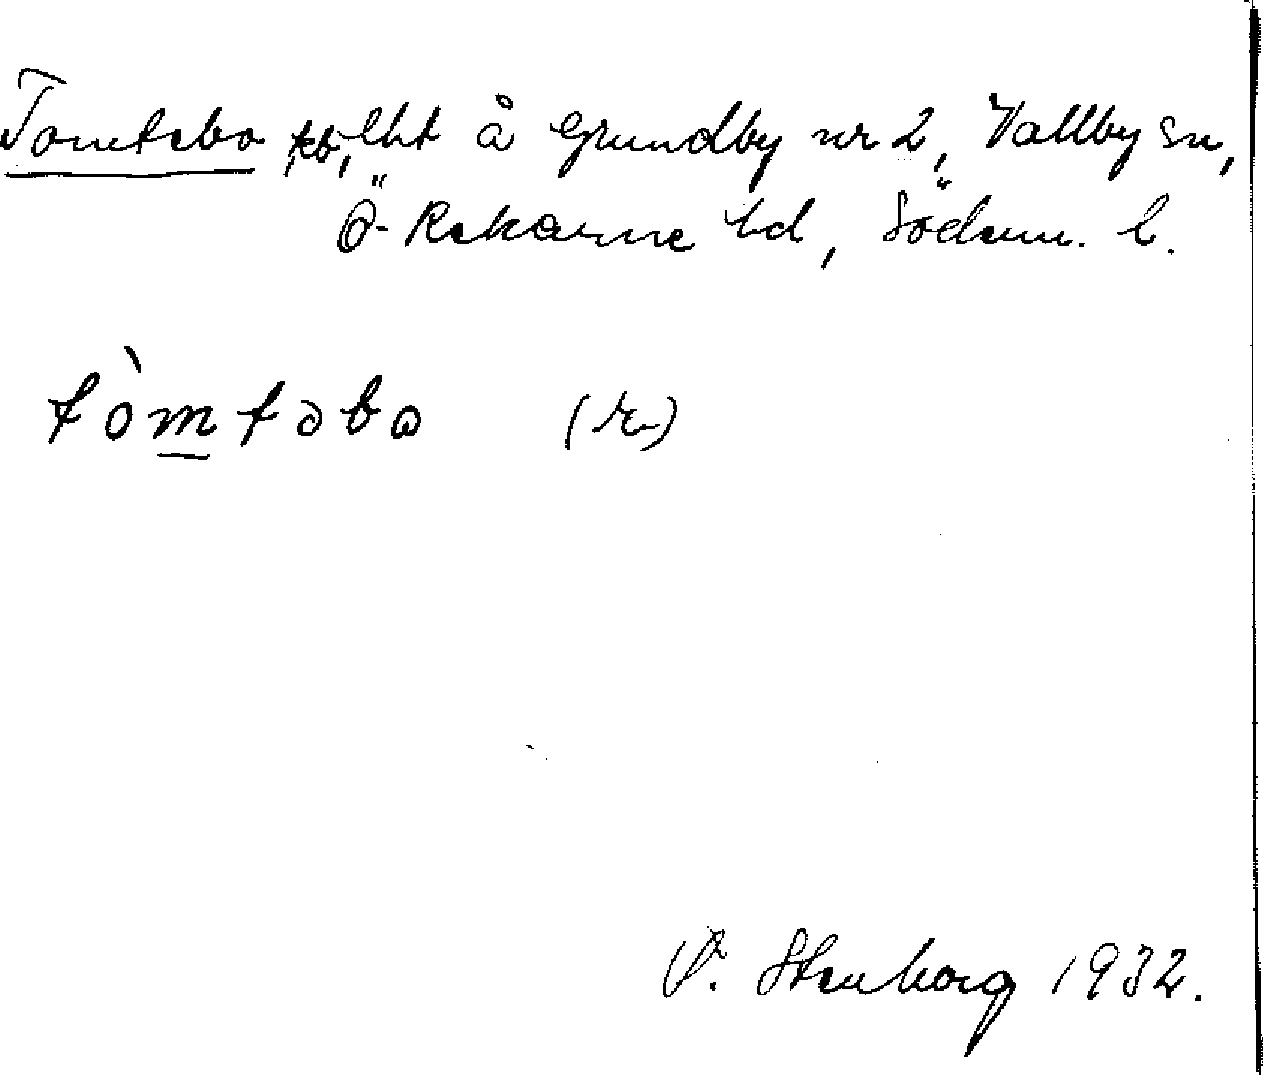 Tomtebo, lht å Grundby nr 2, Vallby sn,
Ö. Rekarne hd, Söderm. l.
tòmtəbo (r)
Stenborg 1932.